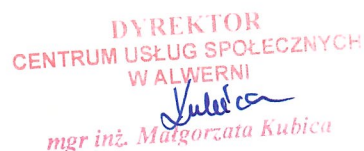 DYREKTOR
CENTRUM USŁUG SPOŁECZNYCH
W ALWERNI
Kubica
mgr inż. Małgorzata Kubica